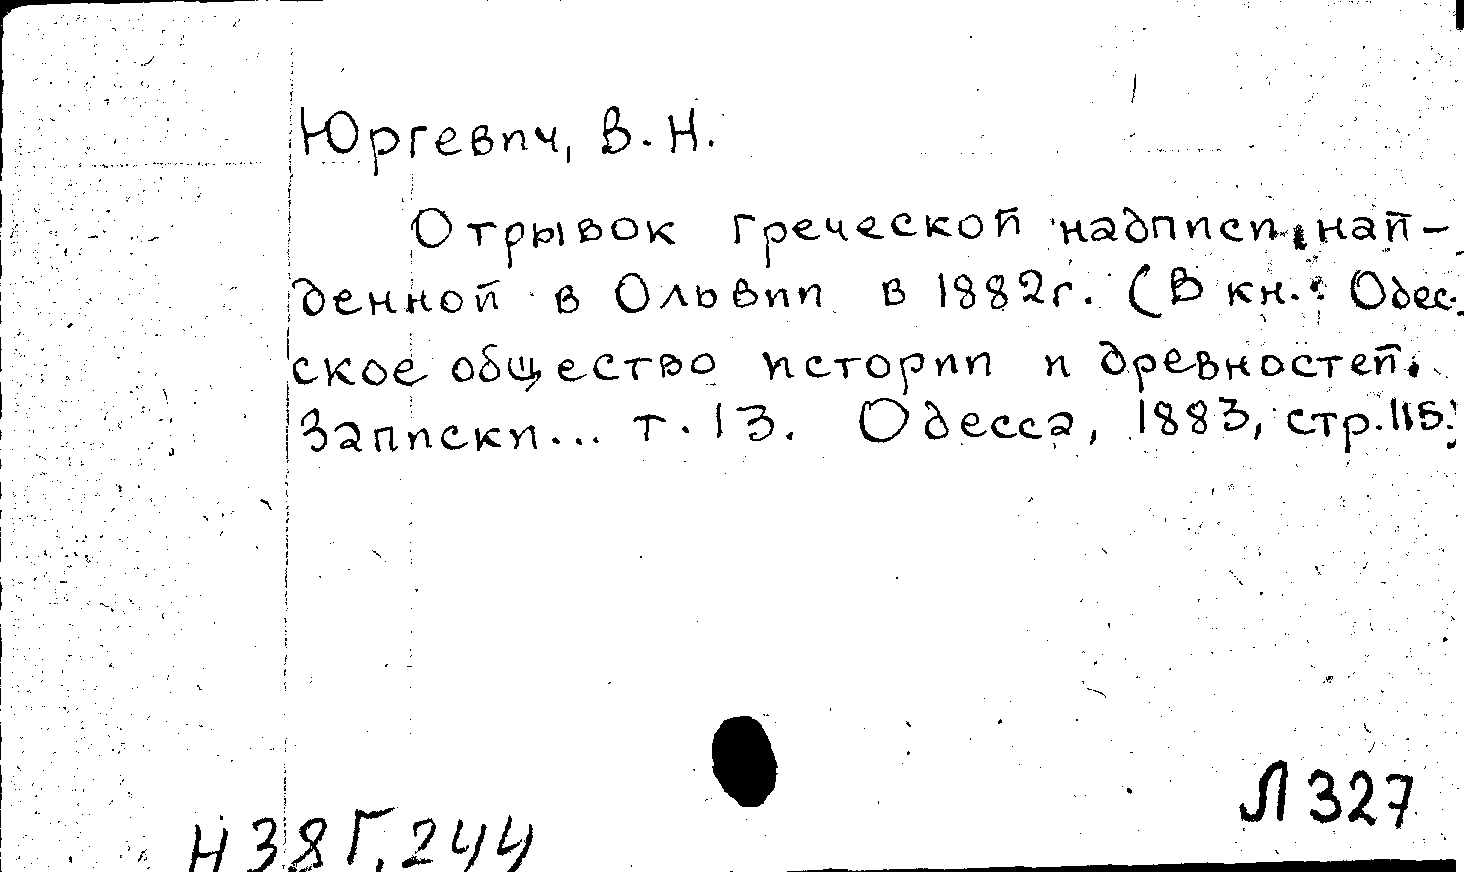 Юргевич, В.Н.
Отрывок греческой надписи, най-
денной в Ольвии в 1882г. (В кн.: Одес-
ское общество истории и древностей.
Записки... т.13. Одесса, 1883, стр.115.)
Л327
Н38Г.244